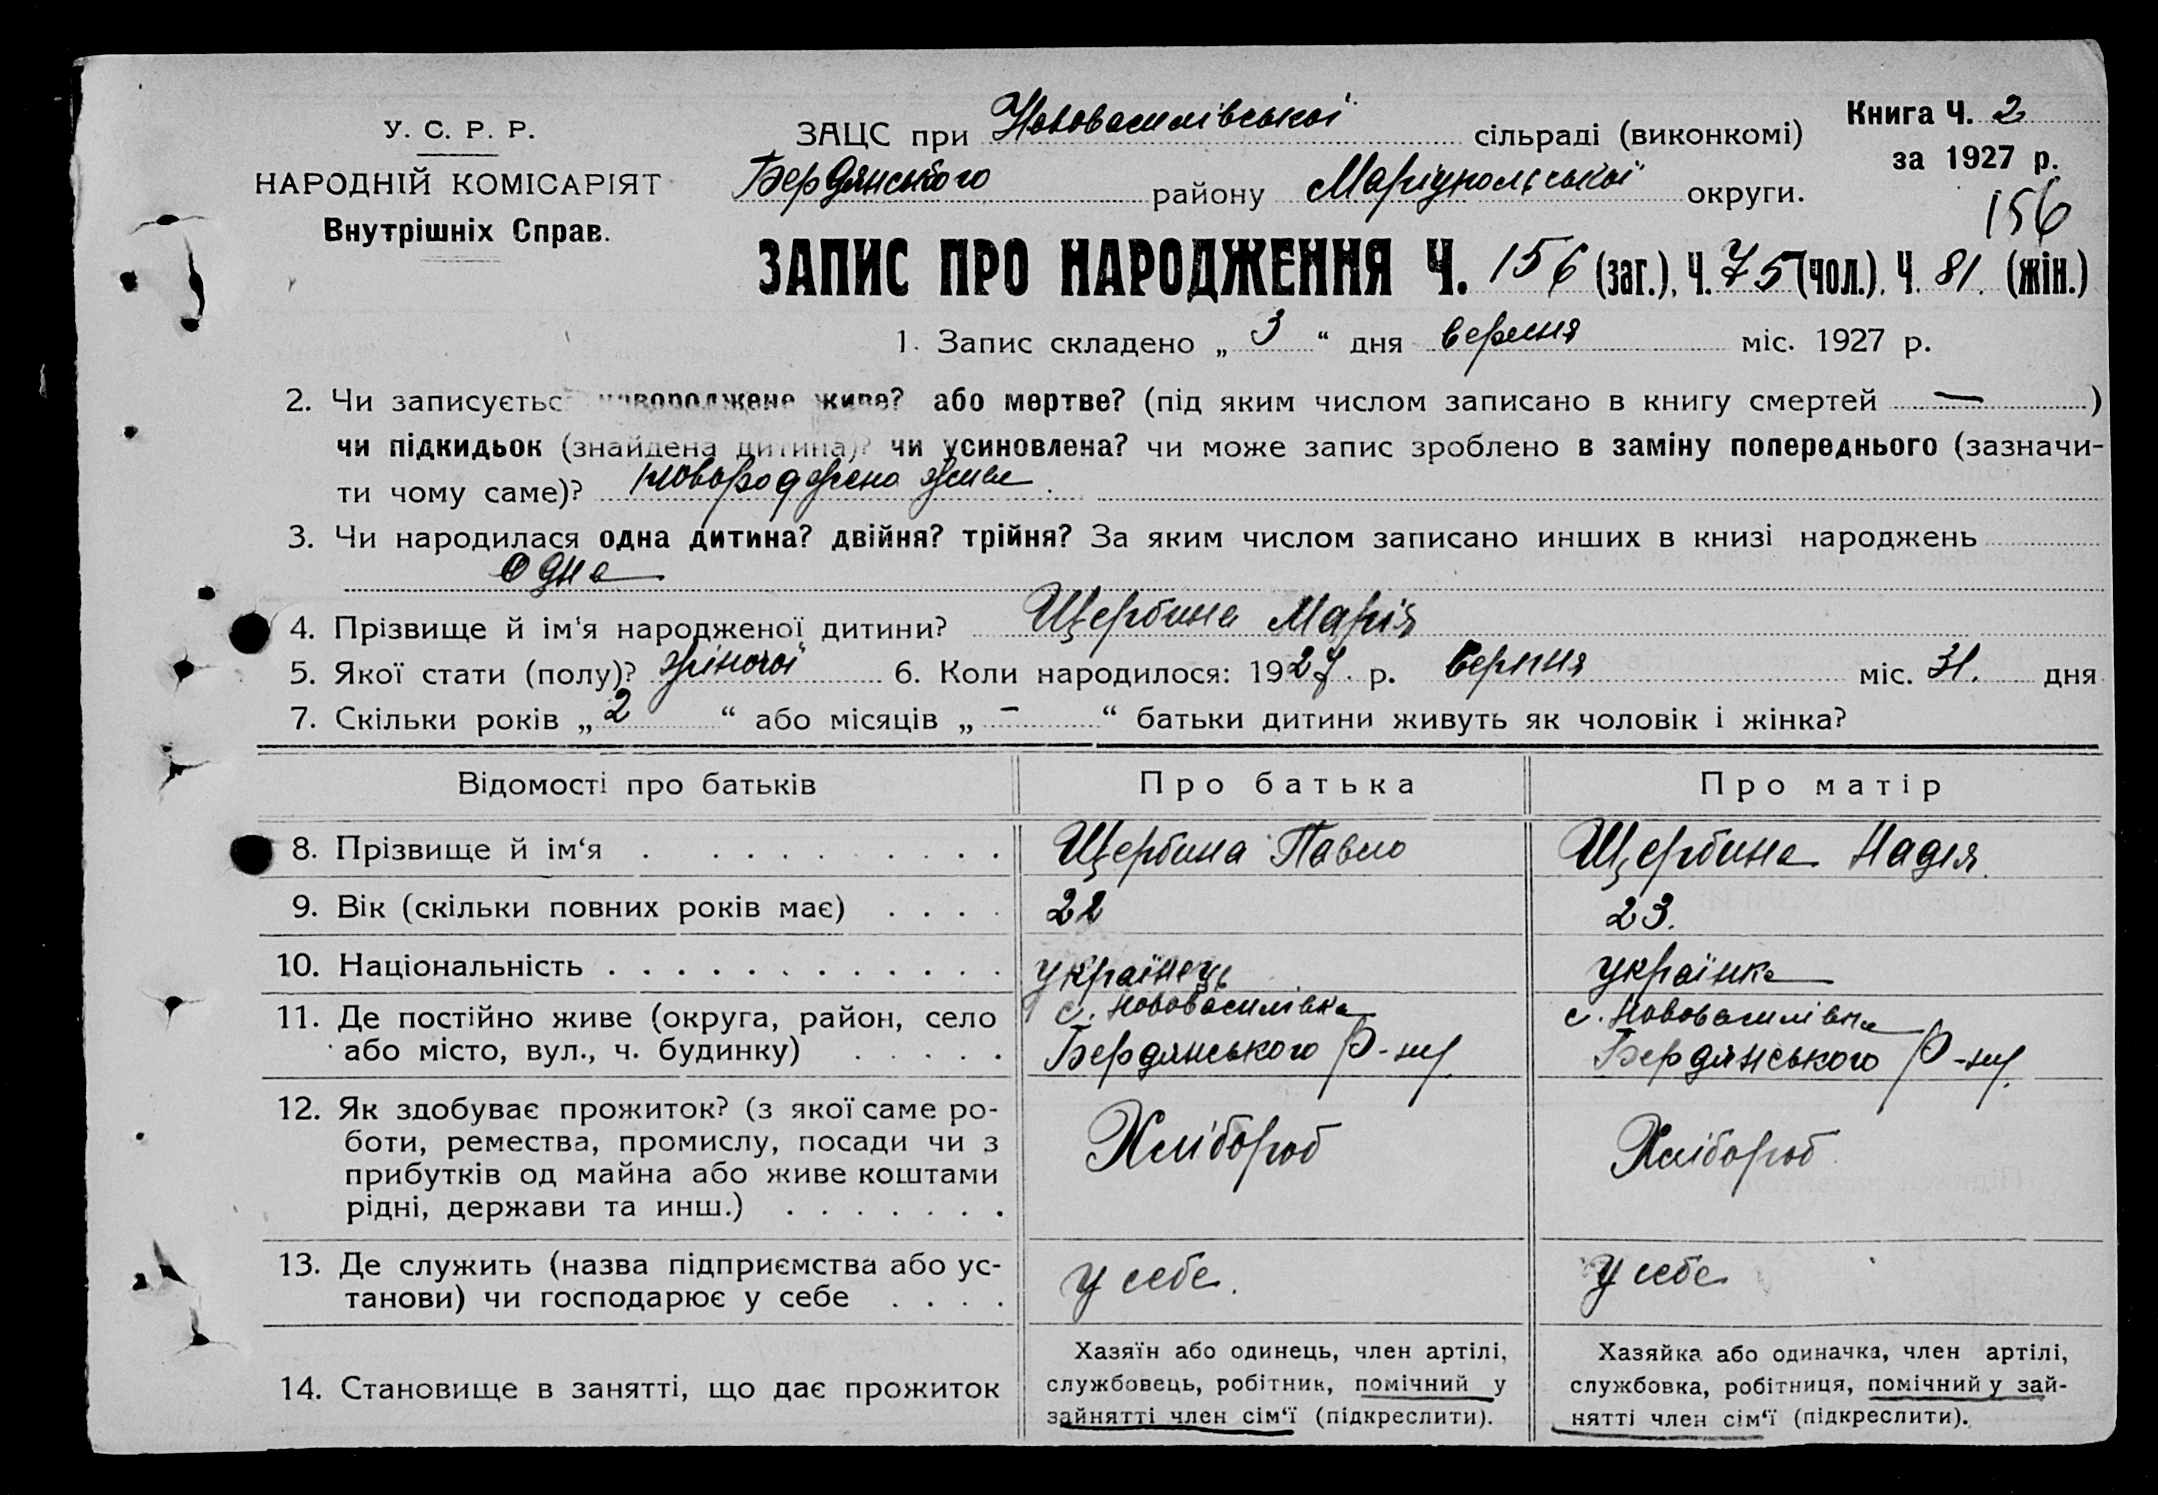 У. С. Р. Р.
НАРОДНІЙ КОМІСАРІЯТ
Внутрішніх Справ.
ЗАЦС при Нововасилівської сільраді (виконкомі)
Бердянського району Маріупольської округи.
Книга Ч. 2
за 1927 р.
156
ЗАПИС ПРО НАРОДЖЕННЯ Ч. 156 (заг.), Ч. 75 (чол.), Ч. 81. (жін.)
1. Запис складено „ 3 “ дня вересня міс. 1927 р.
2. Чи записуєтьс новороджене живе? або мертве? (під яким числом записано в книгу смертей — )
чи підкидьок (знайдена дитина)? чи усиновлена? чи може запис зроблено в заміну попереднього (зазначи-
ти чому саме)? новороджено живе.
3. Чи народилася одна дитина? двійня? трійня? За яким числом записано инших в книзі народжень
одна
4. Прізвище й ім'я народженої дитини? Щербина Марія
5. Якої стати (полу)? жіночої 6. Коли народилося: 1927. р. серпня міс. 31. дня
7. Скільки років „ 2 “ або місяців „ - “ батьки дитини живуть як чоловік і жінка?
Відомості про батьків Про батька Про матір
8. Прізвище й ім‘я . . . . . . . . . Щербина Павло Щербина Надія.
9. Вік (скільки повних років має) . . . . 22 23.
10. Національність . . . . . . . . . . . українець українка
11. Де постійно живе (округа, район, село с. Нововасилівка с. Нововасилівка
або місто, вул., ч. будинку) . . . . . Бердянського Р-ну Бердянського Р-ну.
12. Як здобуває прожиток? (з якої саме ро-
боти, ремества, промислу, посади чи з Хлібороб Хлібороб
прибутків од майна або живе коштами
рідні, держави та инш.) . . . . . . .
13. Де служить (назва підприємства або ус- у себе. у себе
танови) чи господарює у себе . . . .
14. Становище в занятті, що дає прожиток
Хазяїн або одинець, член артілі,
службовець, робітник, помічний у
зайнятті член сім‘ї (підкреслити).
Хазяйка або одиначка, член артілі,
службовка, робітниця, помічний у зай-
нятті член сім‘ї (підкреслити).